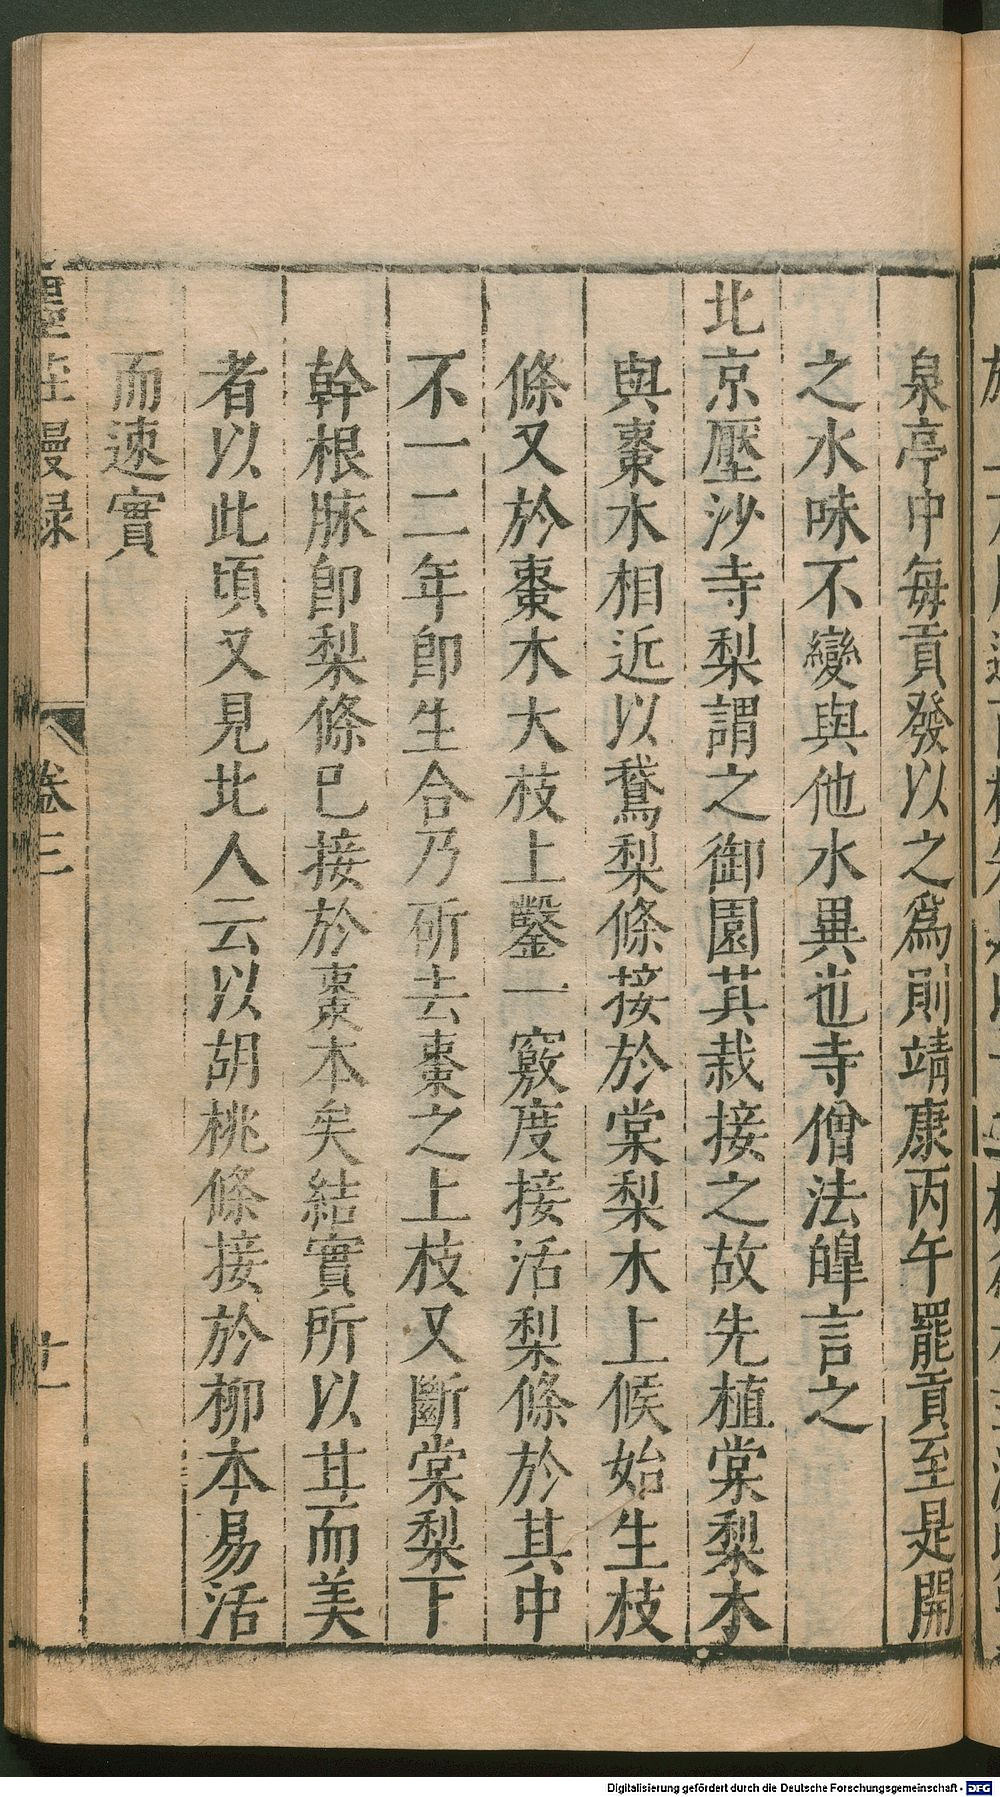 泉亭中每貢發以之爲則靖康丙午罷貢至是開
之水味不變與他水異也寺僧法皥言之
北京壓沙寺梨謂之御園其栽接之故先植棠梨木
與棗木相近以鵞梨條接於棠梨木上候始生枝
條又於棗木大枝上鑿一竅度接活梨條於其中
不一二年卽生合乃斫去棗之上枝又斷棠梨下
幹根脉卽梨條已接於棗本矣結實所以甘而美
者以此頃又見北人云以胡桃條接於柳本易活
而速實
墨莊漫録
卷三
十一
Digitalisierung gefördert durch die Deutsche Forschungsgemeinschaft - DFG